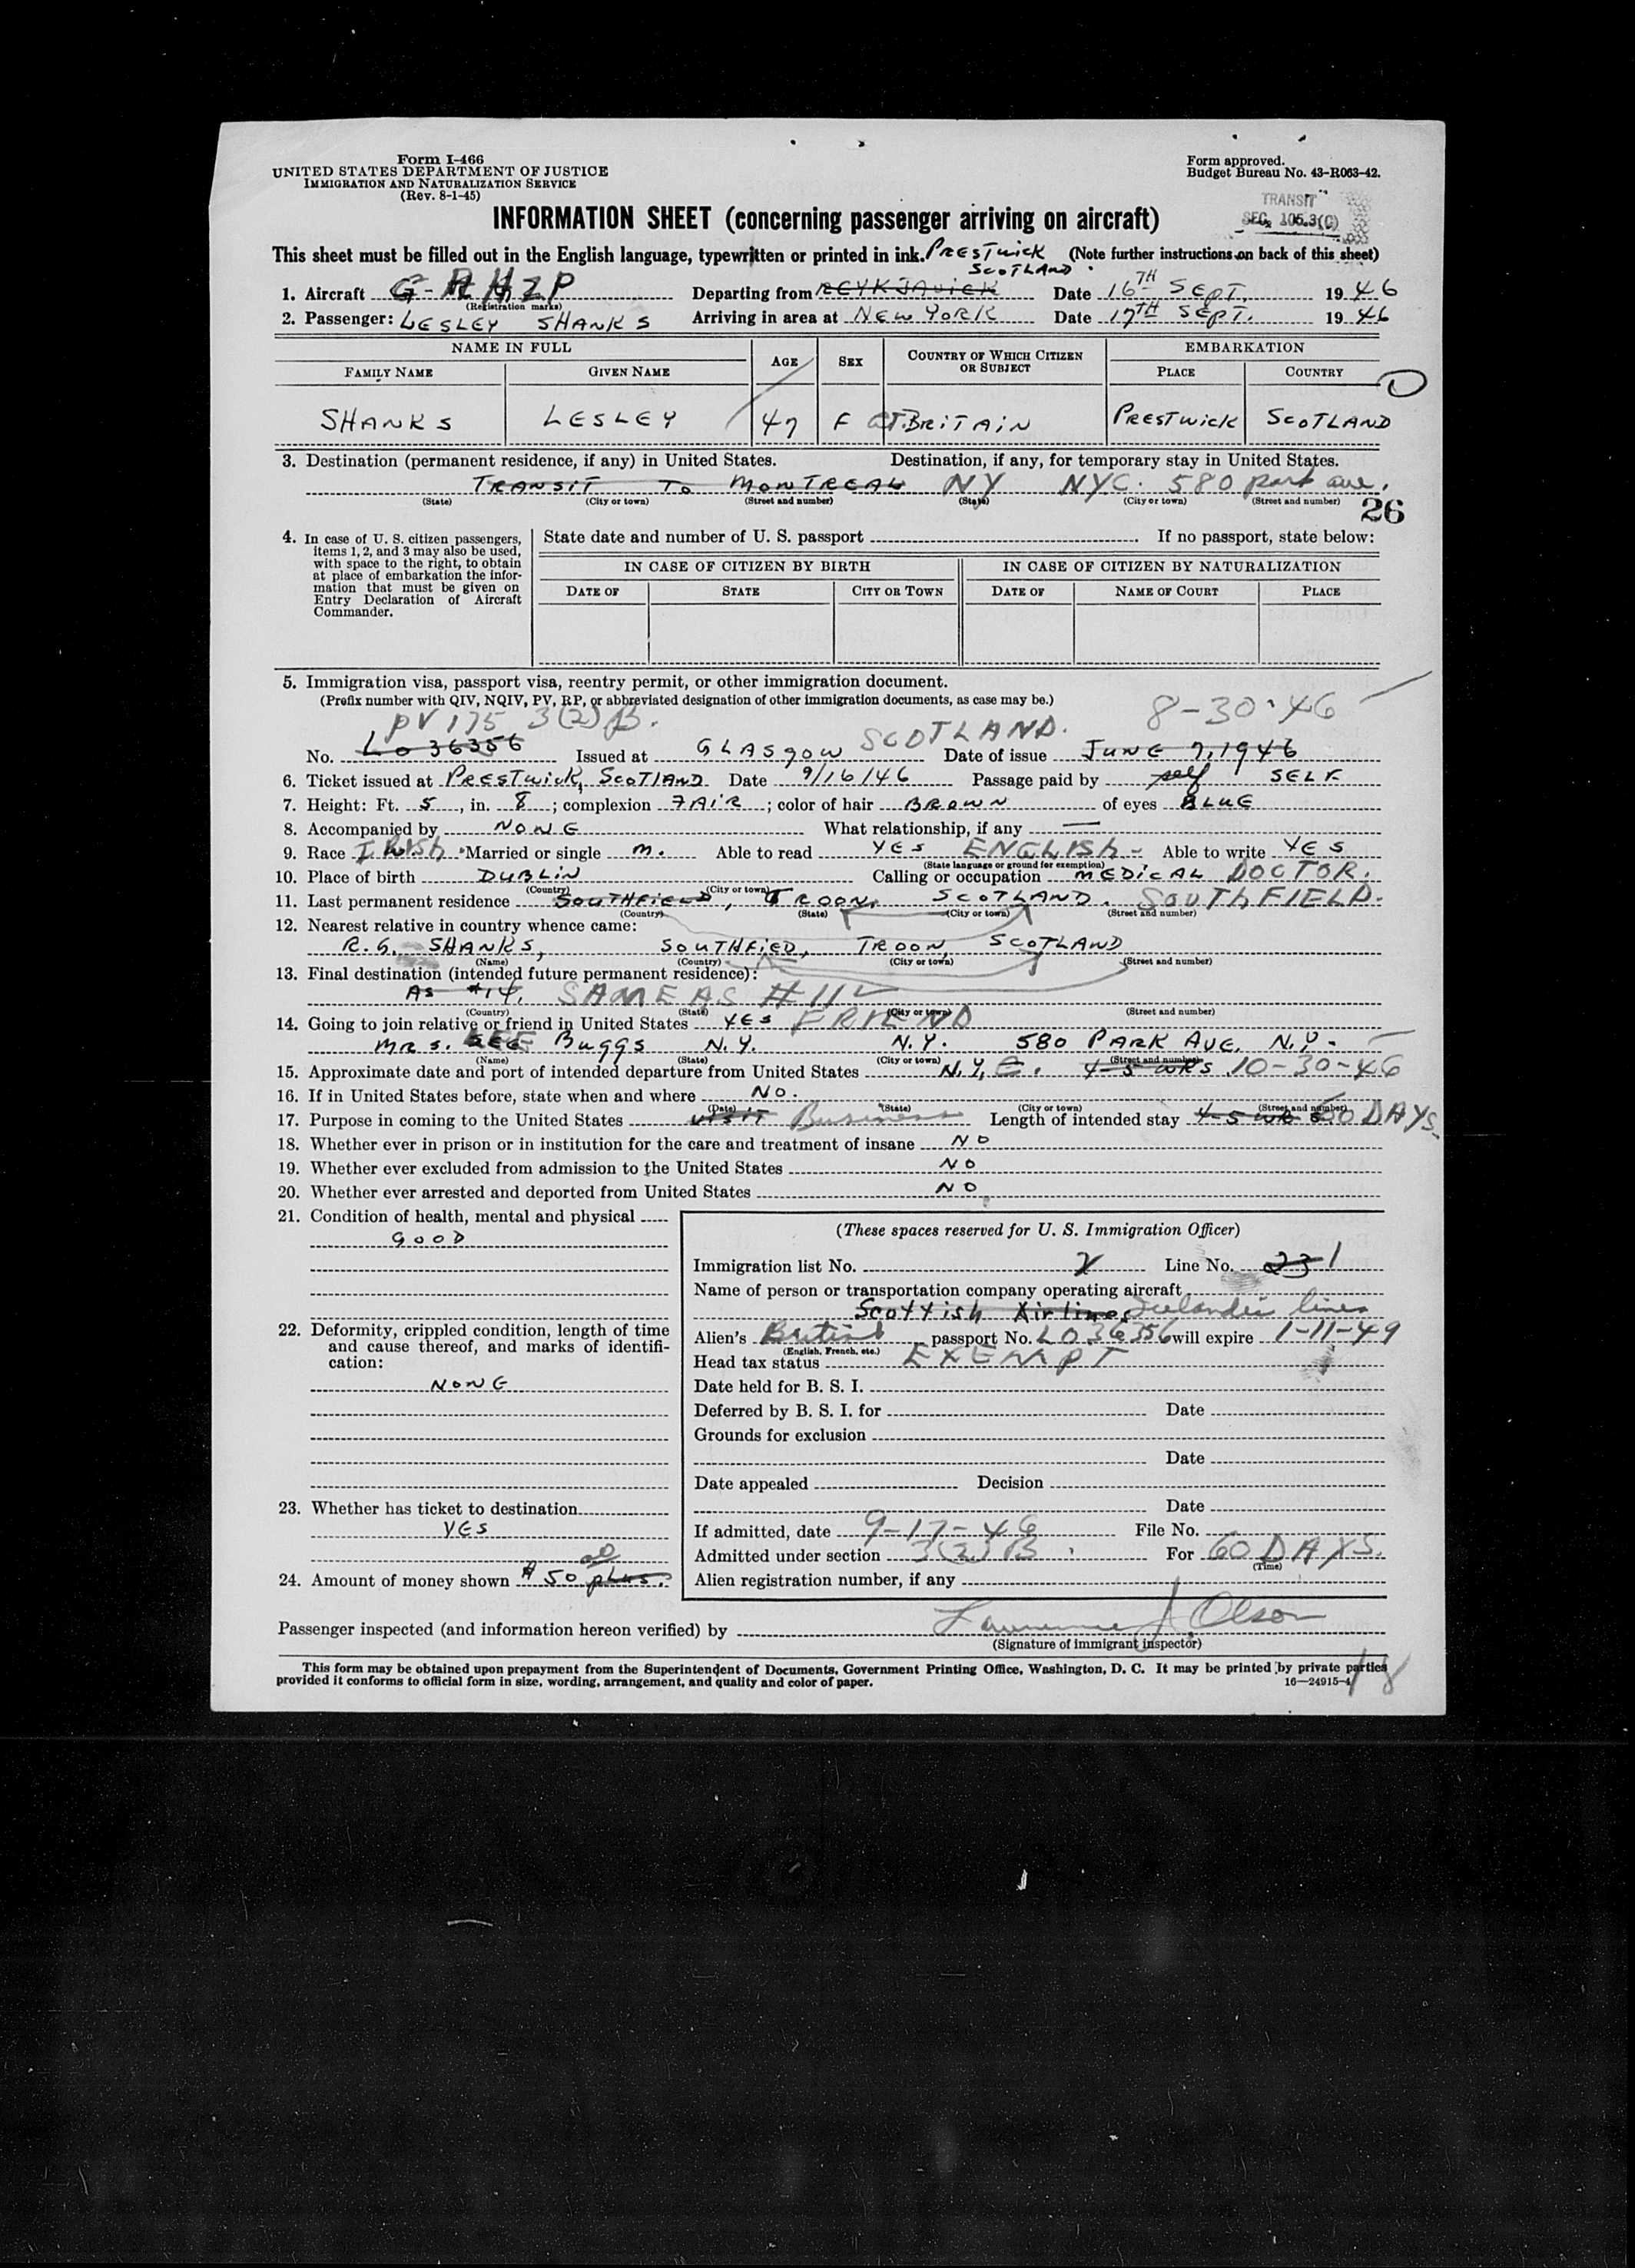 Form I-466
UNITED STATES DEPARTMENT OF JUSTICE
IMMIGRATION AND NATURALIZATION SERVICE
(Rev. 8-1-45)
Form approved.
Budget Bureau No. 43-R063-42.
TRANSIT
SEC. 105.3(C)
INFORMATION SHEET (concerning passenger arriving on aircraft)
This sheet must be filled out in the English language, typewritten or printed in ink. (Note further instructions on back of this sheet)
PRESTWICK
SCOTLAND
1. Aircraft G-AHZP Departing from REYKJAVICK Date 16TH SEPT. 1946
(Registration marks)
2. Passenger: LESLEY SHANKS Arriving in area at NEW YORK Date 17TH SEPT. 1946
NAME IN FULL AGE SEX COUNTRY OF WHICH CITIZEN OR SUBJECT EMBARKATION
FAMILY NAME GIVEN NAME PLACE COUNTRY
SHANKS LESLEY 47 F GT. BRITAIN PRESTWICK SCOTLAND
3. Destination (permanent residence, if any) in United States. Destination, if any, for temporary stay in United States.
TRANSIT TO MONTREAL NY NYC. 580 park ave.
(State) (City or town) (Street and number) (State) (City or town) (Street and number)
26
4. In case of U. S. citizen passengers, items 1, 2, and 3 may also be used, with space to the right, to obtain at place of embarkation the information that must be given on Entry Declaration of Aircraft Commander.
State date and number of U. S. passport If no passport, state below:
IN CASE OF CITIZEN BY BIRTH IN CASE OF CITIZEN BY NATURALIZATION
DATE OF STATE CITY OR TOWN DATE OF NAME OF COURT PLACE
5. Immigration visa, passport visa, reentry permit, or other immigration document.
(Prefix number with QIV, NQIV, PV, RP, or abbreviated designation of other immigration documents, as case may be.)
PV 175 3(2)B. SCOTLAND. 8-30-46
No. LO 36356 Issued at GLASGOW Date of issue JUNE 7, 1946
6. Ticket issued at PRESTWICK, SCOTLAND Date 9/16/46 Passage paid by self SELF
7. Height: Ft. 5, in. 8; complexion FAIR; color of hair BROWN of eyes BLUE
8. Accompanied by NONE What relationship, if any —
9. Race IRISH Married or single M. Able to read YES ENGLISH Able to write YES
(State language or ground for exemption)
10. Place of birth DUBLIN Calling or occupation MEDICAL DOCTOR.
(Country) (City or town)
11. Last permanent residence SOUTHFIELD, TROON, SCOTLAND. SOUTHFIELD.
(Country) (State) (City or town) (Street and number)
12. Nearest relative in country whence came:
R.G. SHANKS, SOUTHFIED, TROON, SCOTLAND
(Name) (Country) (City or town) (Street and number)
13. Final destination (intended future permanent residence):
AS #14. SAME AS #11
(Country) (State) (City or town) (Street and number)
14. Going to join relative or friend in United States YES FRIEND
MRS. LEE Buggs N.Y. N.Y. 580 PARK AVE. N.Y.
(Name) (State) (City or town) (Street and number)
15. Approximate date and port of intended departure from United States N.Y.C. 4-5 WKS 10-30-46
16. If in United States before, state when and where NO.
(Date) (State) (City or town) (Street and number)
17. Purpose in coming to the United States VISIT Business Length of intended stay 4-5 wks 60 DAYS.
18. Whether ever in prison or in institution for the care and treatment of insane NO
19. Whether ever excluded from admission to the United States NO
20. Whether ever arrested and deported from United States NO
21. Condition of health, mental and physical
GOOD
22. Deformity, crippled condition, length of time and cause thereof, and marks of identification:
NONE
23. Whether has ticket to destination
YES
24. Amount of money shown $50 00 plus.
(These spaces reserved for U. S. Immigration Officer)
Immigration list No. Line No. 23 1
Name of person or transportation company operating aircraft
Scottish Airlines Icelandic lines
Alien's British passport No. LO 36356 will expire 1-11-49
(English, French, etc.)
Head tax status EXEMPT
Date held for B. S. I.
Deferred by B. S. I. for Date
Grounds for exclusion
Date
Date appealed Decision
Date
If admitted, date 9-17-46 File No.
Admitted under section 3(2)B. For 60 DAYS.
(Time)
Alien registration number, if any
Passenger inspected (and information hereon verified) by Lawrence J. Olson
(Signature of immigrant inspector)
This form may be obtained upon prepayment from the Superintendent of Documents, Government Printing Office, Washington, D. C. It may be printed by private parties
provided it conforms to official form in size, wording, arrangement, and quality and color of paper. 16—24915-4